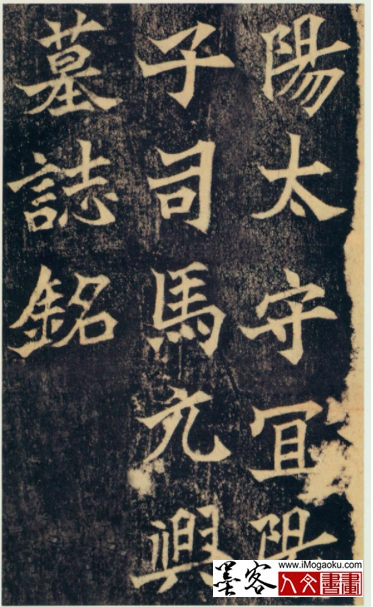 陽太守宜陽
子司馬元興
墓誌銘
墨客
www.iMogaoku.com
人文書畫